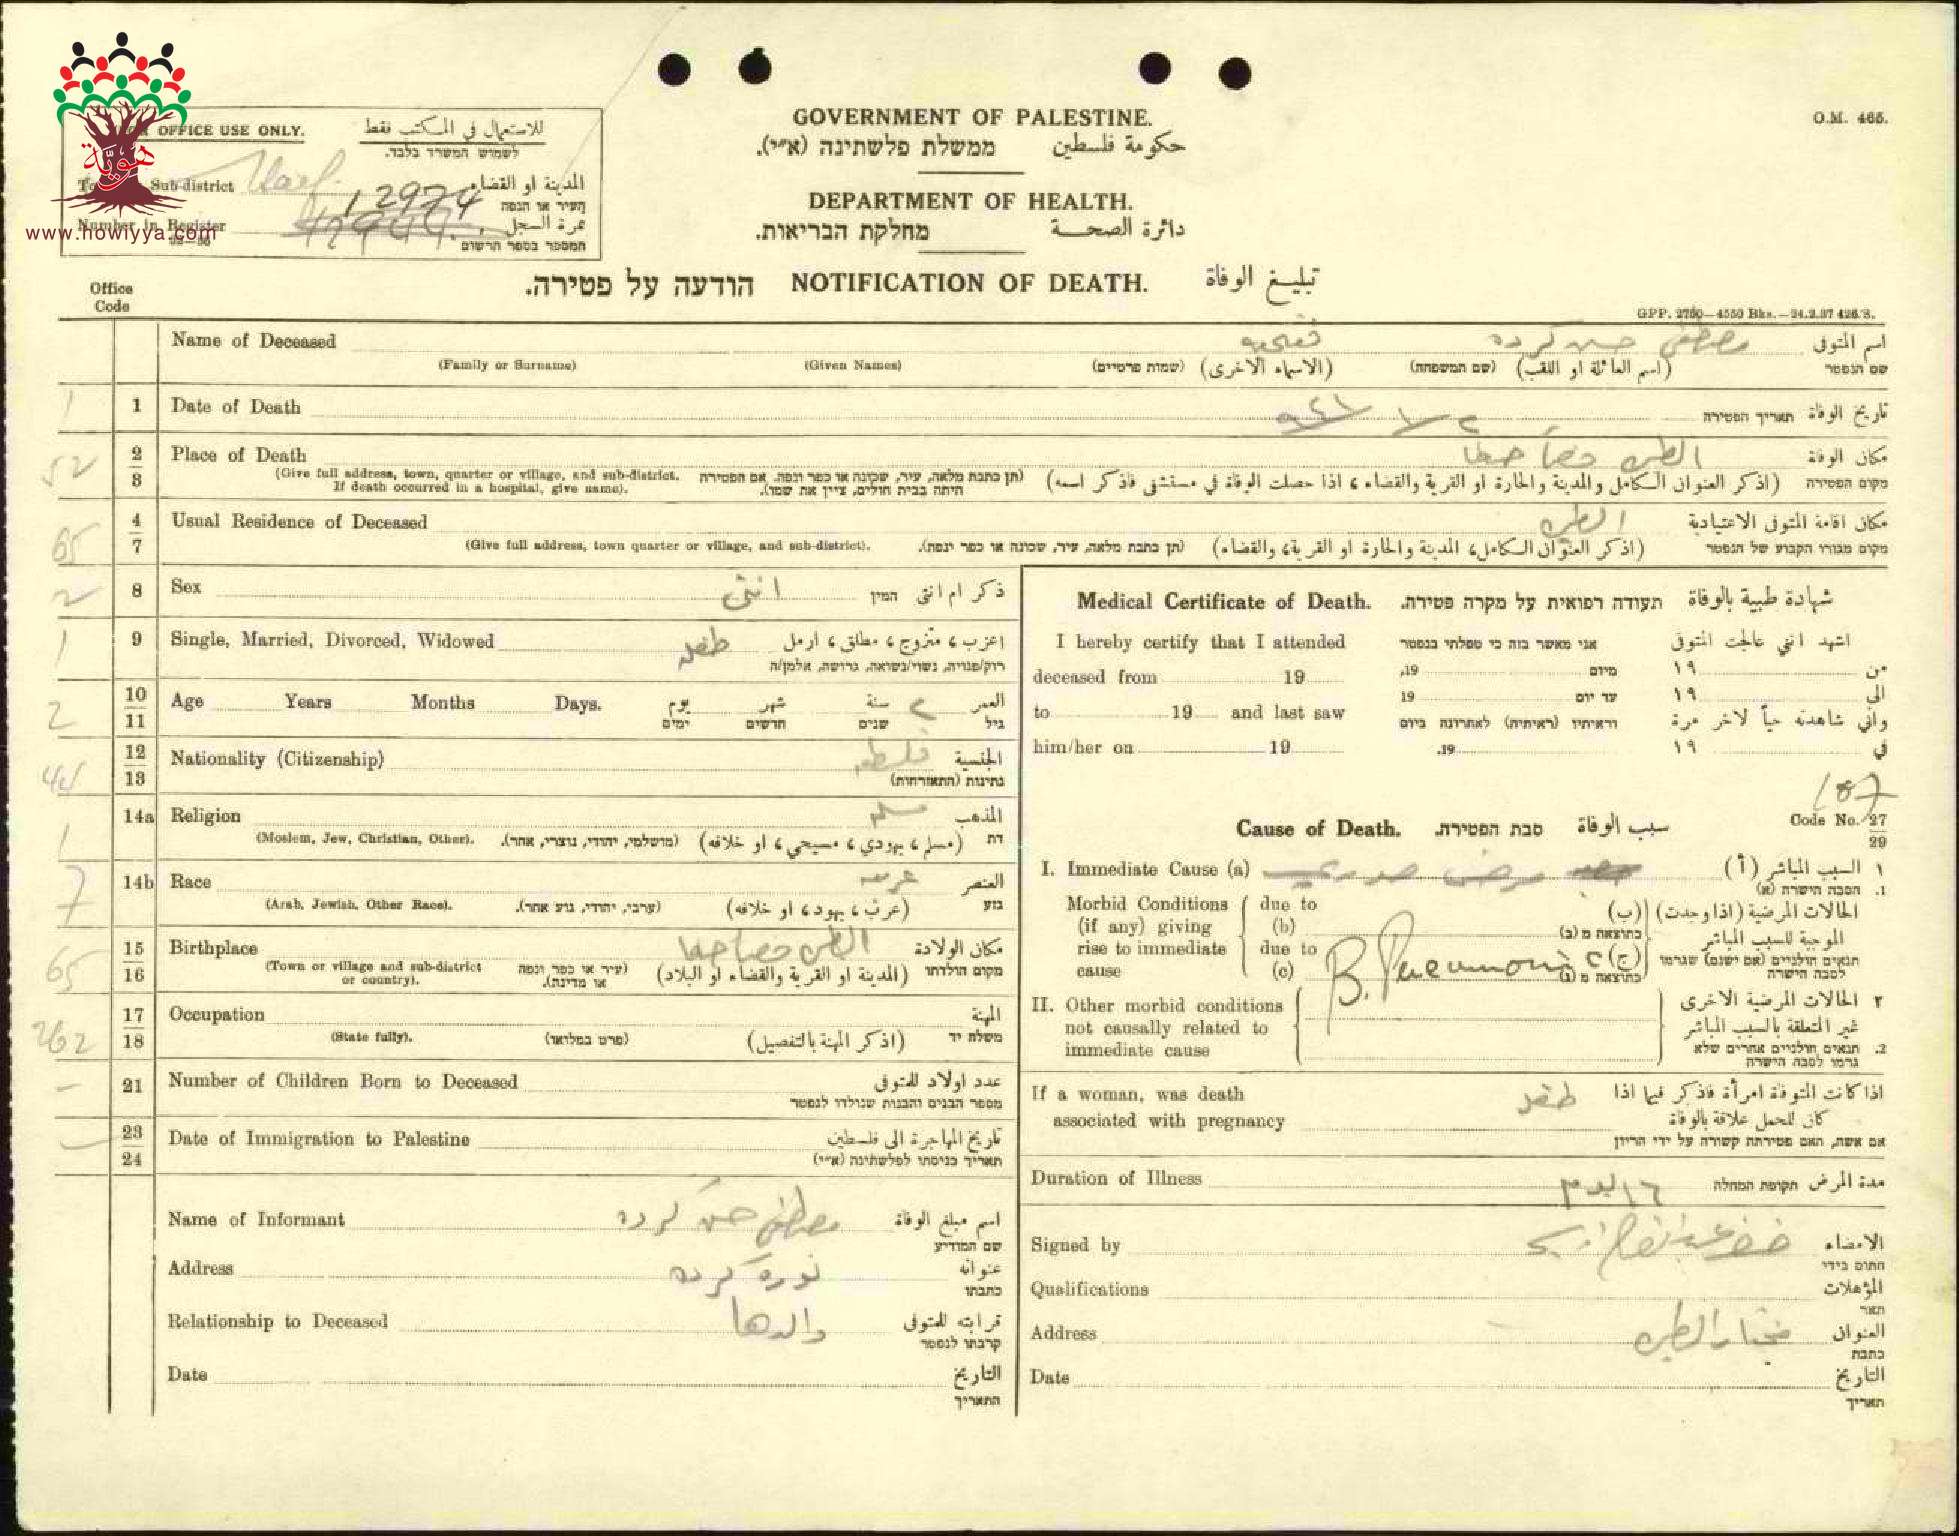 GOVERNMENT OF PALESTINE.
ממשלת פלשתינה (א״י). حكومة فلسطين
O.M. 465.
DEPARTMENT OF HEALTH.
מחלקת הבריאות. دائرة الصحة
OFFICE USE ONLY. للاستعمال في المكتب فقط
לשמוש המשרד בלבד.
Sub-district المدينة او القضاء
העיר או הנפה
12974
Number in Register نمرة السجل
המספר בספר הרשום
www.howiyya.com
هوية
הודעה על פטירה. NOTIFICATION OF DEATH. تبليغ الوفاة
Office
Code
GPP. 2750—4550 Bks.—24.2.37 426/S.
Name of Deceased فتحيه مصطفى حسن كرده اسم المتوفى
(Family or Surname) (Given Names) (שמות פרטיים) (الاسماء الاخرى) (שם המשפחה) (اسم العائلة او اللقب) שם הנפטר
1 1 Date of Death תאריך הפטירה تاريخ الوفاة
52 2/3 Place of Death الطيره قضاء حيفا مكان الوفاة
(Give full address, town, quarter or village, and sub-district. If death occurred in a hospital, give name).
(תן כתבת מלאה, עיר, שכונה או כפר ונפה. אם הפטירה היתה בבית חולים, ציין את שמו).
(اذكر العنوان الكامل والمدينة والحارة او القرية والقضاء، اذا حصلت الوفاة في مستشفى فاذكر اسمه) מקום הפטירה
65 4/7 Usual Residence of Deceased الطيره مكان اقامة المتوفى الاعتيادية
(Give full address, town quarter or village, and sub-district). (תן כתבת מלאה, עיר, שכונה או כפר ונפה). (اذكر العنوان الكامل، المدينة والحارة او القرية، والقضاء) מקום מגורו הקבוע של הנפטר
2 8 Sex انثى המין ذكر ام انثى
1 9 Single, Married, Divorced, Widowed طفله اعزب، متزوج، مطلق، ارمل
רוק/פנויה, נשוי/נשואה, גרוש/ה, אלמן/ה
2 10/11 Age Years Months Days. يوم شهر ٢ سنة العمر
ימים חדשים שנים גיל
12/13 Nationality (Citizenship) الجنسية
נתינות (התאזרחות)
1 14a Religion مسلم المذهب
(Moslem, Jew, Christian, Other). (מושלמי, יהודי, נוצרי, אחר). (مسلم، يهودي، مسيحي، او خلافه) דת
7 14b Race العنصر
(Arab, Jewish, Other Race). (ערבי, יהודי, גזע אחר). (عرب، يهود، او خلافه) גזע
65 15/16 Birthplace الطيره قضاء حيفا مكان الولادة
(Town or village and sub-district or country). (עיר או כפר ונפה או מדינה). (المدينة او القرية والقضاء او البلاد) מקום הולדתו
262 17/18 Occupation المهنة
(State fully). (פרט במלואו) (اذكر المهنة بالتفصيل) משלח יד
– 21 Number of Children Born to Deceased عدد اولاد للمتوفى
מספר הבנים והבנות שנולדו לנפטר
– 23/24 Date of Immigration to Palestine تاريخ المهاجرة الى فلسطين
תאריך כניסתו לפלשתינה (א״י)
Name of Informant مصطفى حسن كرده اسم مبلغ الوفاة
שם המודיע
Address عنوانه
כתבתו
Relationship to Deceased والدها قرابته للمتوفى
קרבתו לנפטר
Date التاريخ
התאריך
Medical Certificate of Death. תעודה רפואית על מקרה פטירה. شهادة طبية بالوفاة
I hereby certify that I attended אני מאשר בזה כי טפלתי בנפטר اشهد انني عالجت المتوفى
deceased from 19 19, מיום ١٩ من
to 19 and last saw 19 עד יום ١٩ الى
וראיתיו (ראיתיה) לאחרונה ביום واني شاهدته حياً لآخر مرة
him/her on 19 19. ١٩ في
107
Cause of Death. סבת הפטירה. سبب الوفاة Code No. 27/29
I. Immediate Cause (a) مرض صدري (أ) السبب المباشر ١
הסבה הישרה (א) .1
Morbid Conditions (if any) giving rise to immediate cause due to (b) due to (c)
(ب) الحالات المرضية (اذا وجدت) الموجبة للسبب المباشر
כתוצאה מ (ב)
(ج) תנאים חולניים (אם ישנם) שגרמו לסבה הישרה
כתוצאה מ (ג)
B. Pneumonia
II. Other morbid conditions not causally related to immediate cause
٢ الحالات المرضية الاخرى غير المتعلقة بالسبب المباشر
2. תנאים חולניים אחרים שלא גרמו לסבה הישרה
If a woman, was death associated with pregnancy طفله اذا كانت المتوفاة امرأة فاذكر فيما اذا كان للحمل علاقة بالوفاة
אם אשה, האם פטירתה קשורה על ידי הריון
Duration of Illness ١٦ يوم תקופת המחלה مدة المرض
Signed by الامضاء
חתום בידי
Qualifications المؤهلات
תאר
Address مختار الطيره العنوان
כתבת
Date التاريخ
תאריך